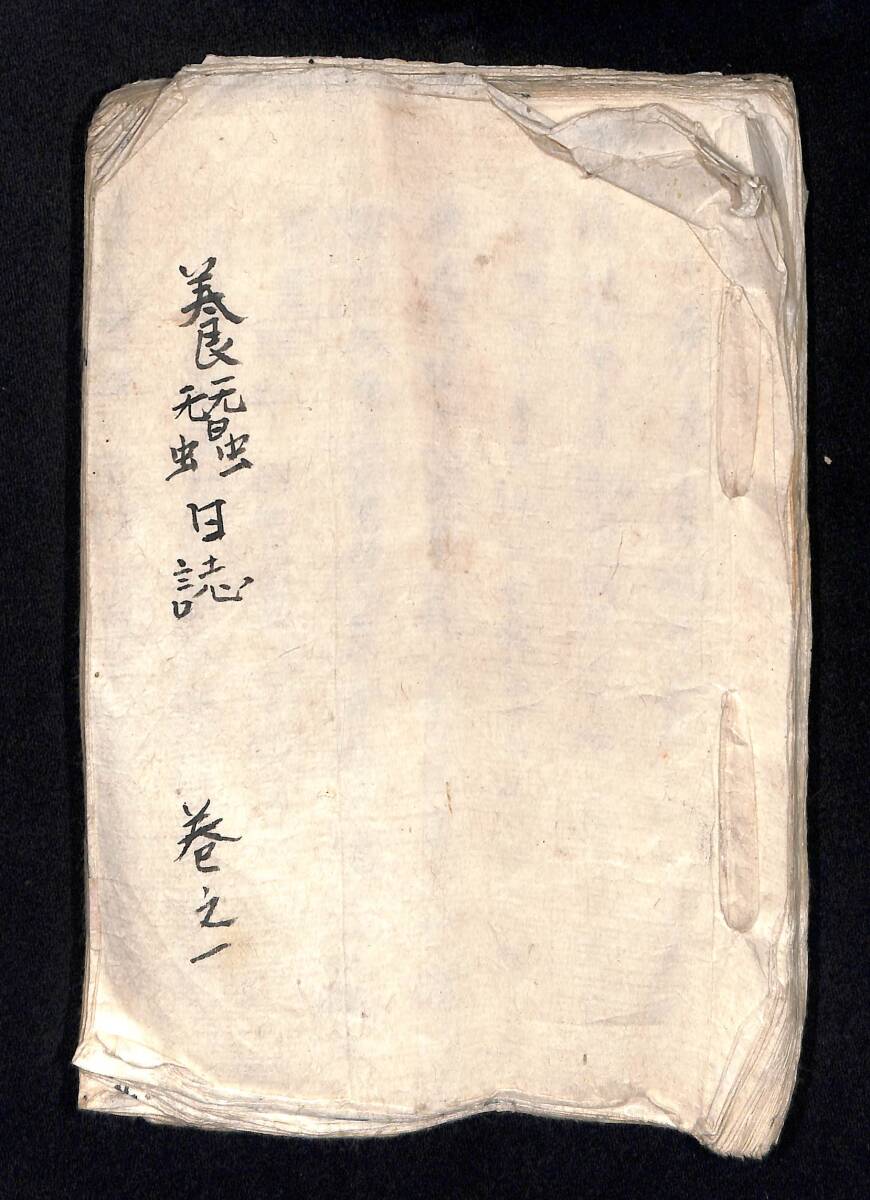 養蠶日誌　巻之一